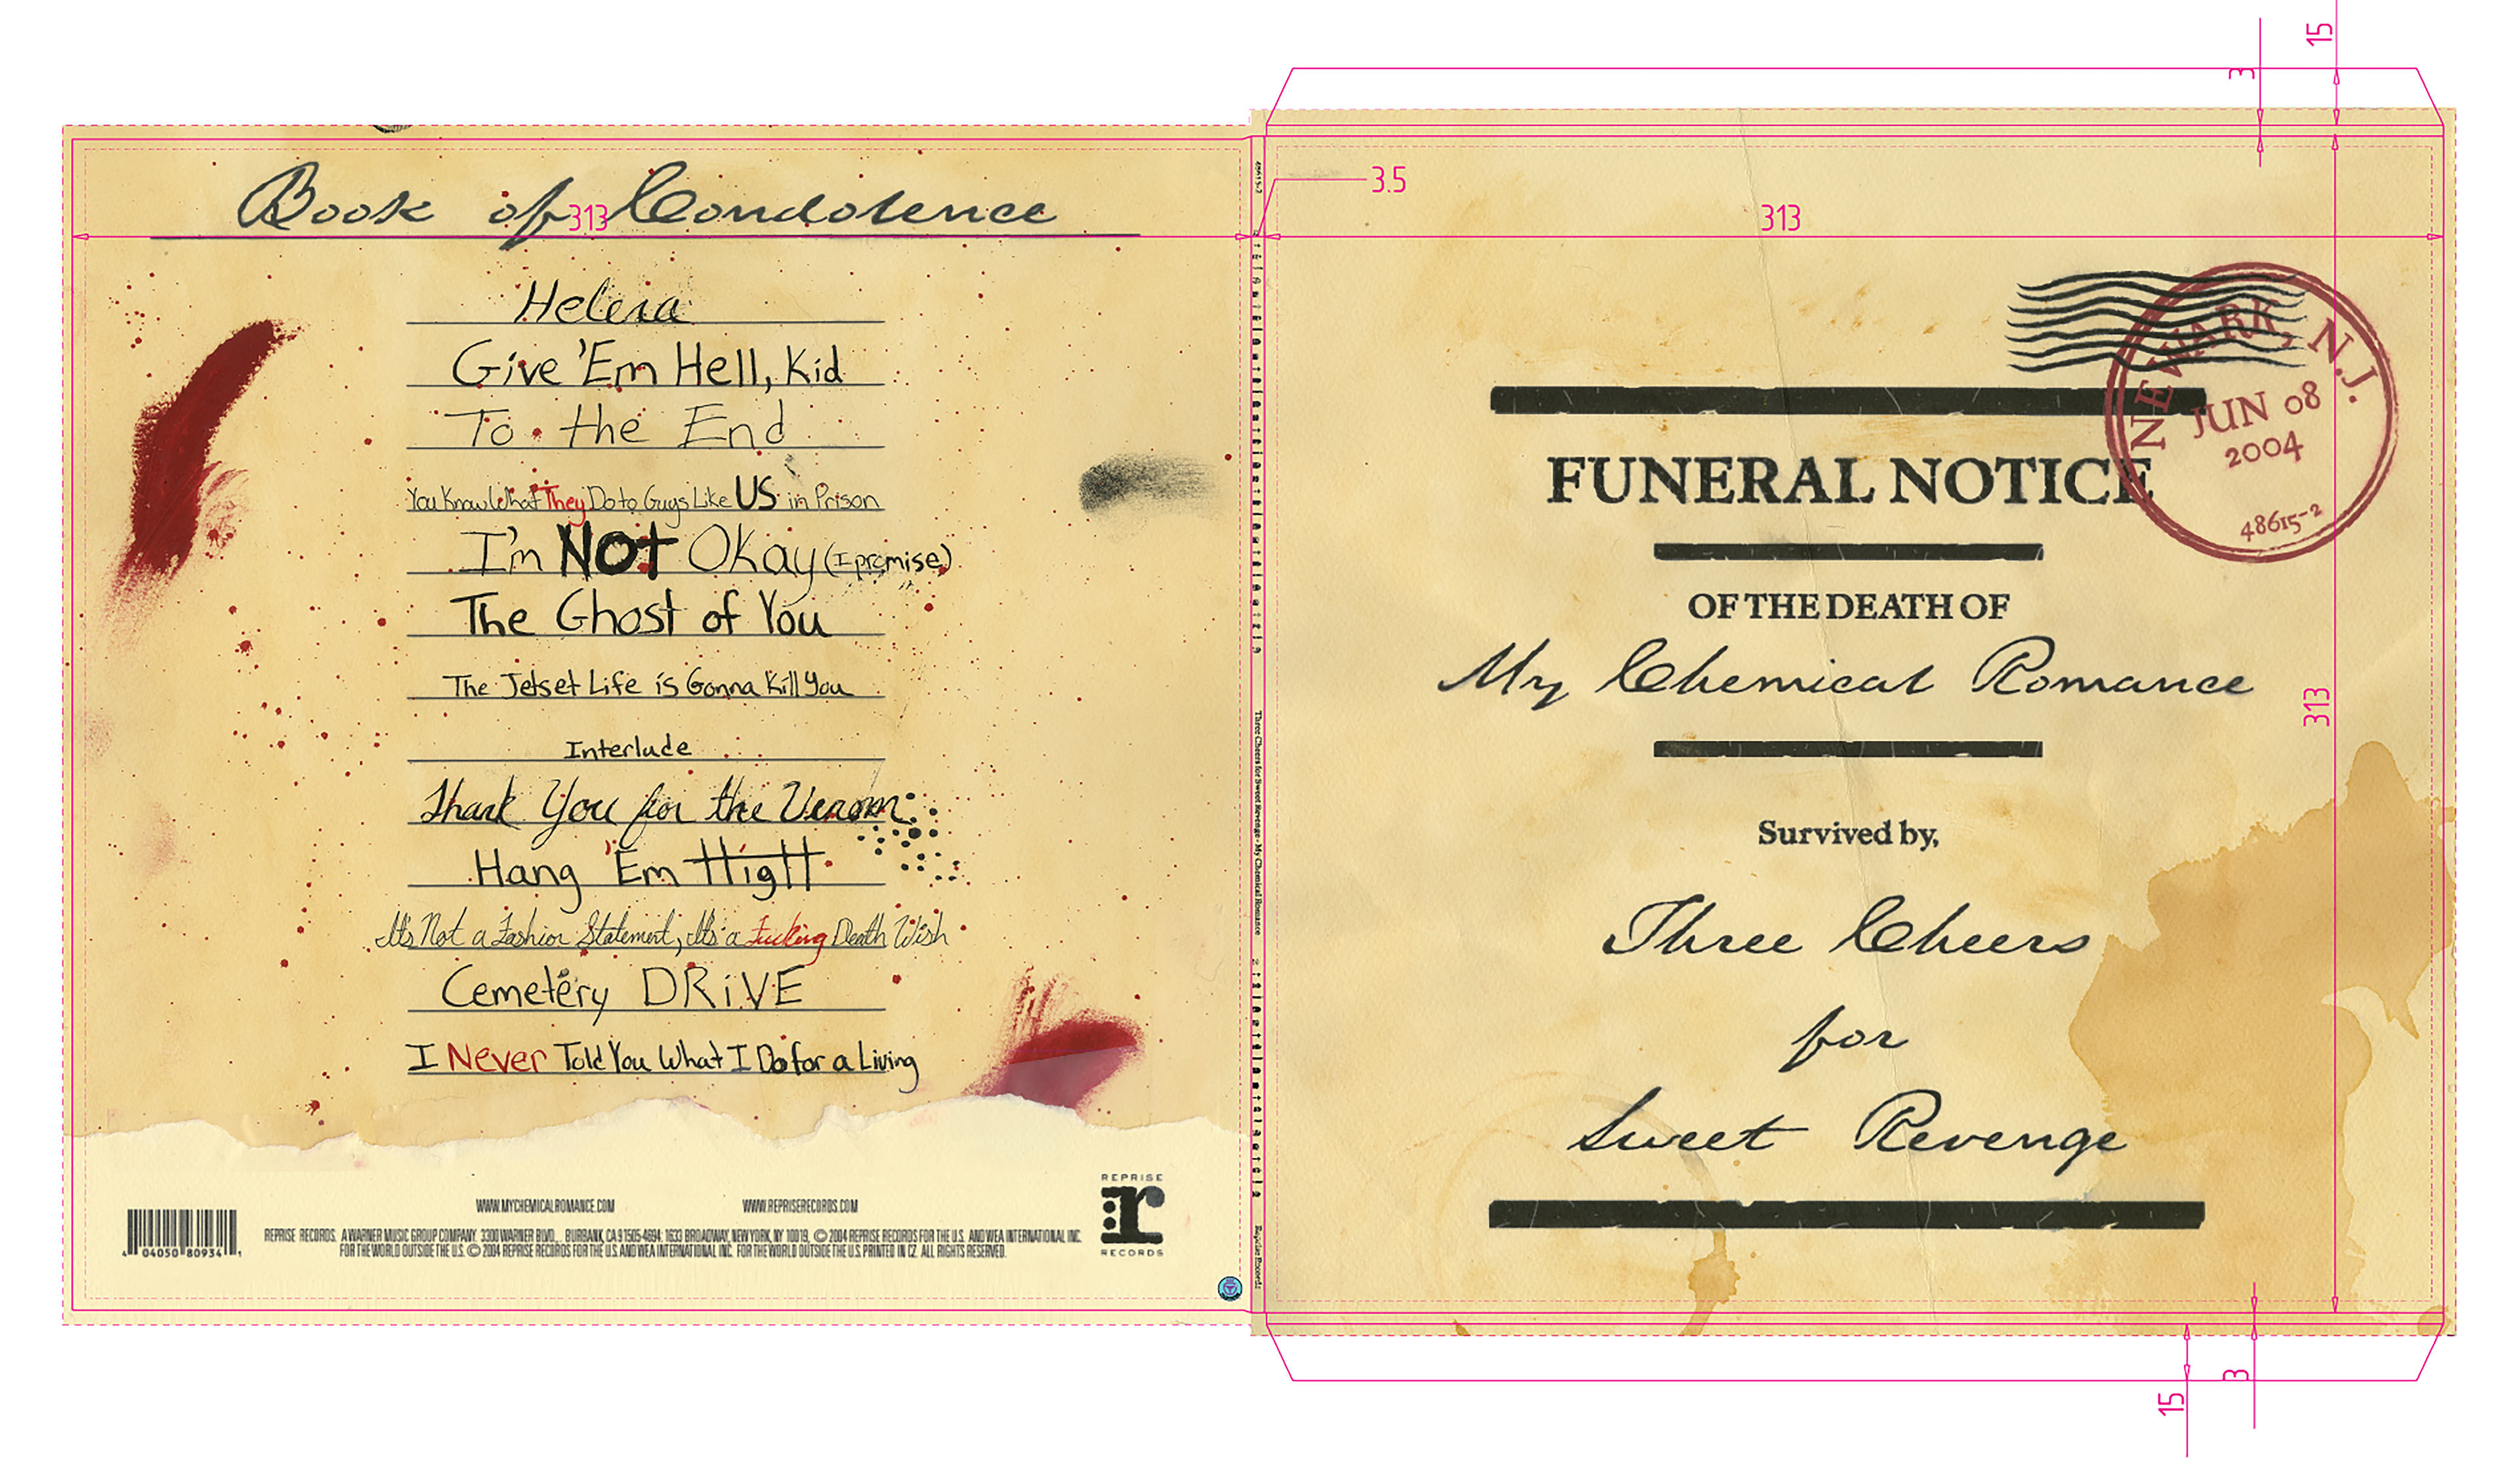 Book of Condolence
313
Helena
Give 'Em Hell, Kid
To the End
You Know What They Do to Guys Like US in Prison
I'm NOT Okay (I promise)
The Ghost of You
The Jetset Life is Gonna Kill You
Interlude
Thank You for the Venom
Hang 'Em HigH
It's Not a Fashion Statement, It's a Fucking Death Wish
Cemetery DRiVE
I Never Told You What I Do for a Living
WWW.MYCHEMICALROMANCE.COM
WWW.REPRISERECORDS.COM
REPRISE RECORDS. A WARNER MUSIC GROUP COMPANY. 3300 WARNER BLVD., BURBANK, CA 91505-4694; 1633 BROADWAY, NEW YORK, NY 10019, © 2004 REPRISE RECORDS FOR THE U.S. AND WEA INTERNATIONAL INC.
FOR THE WORLD OUTSIDE THE U.S. © 2004 REPRISE RECORDS FOR THE U.S. AND WEA INTERNATIONAL INC. FOR THE WORLD OUTSIDE THE U.S. PRINTED IN CZ. ALL RIGHTS RESERVED.
4 04050 80934 1
REPRISE
r
RECORDS
48615-2
Three Cheers for Sweet Revenge - My Chemical Romance
Reprise Records
3.5
313
15
3
NEWARK, N.J.
JUN 08
2004
48615-2
FUNERAL NOTICE
OF THE DEATH OF
My Chemical Romance
313
Survived by,
Three Cheers
for
Sweet Revenge
3
15